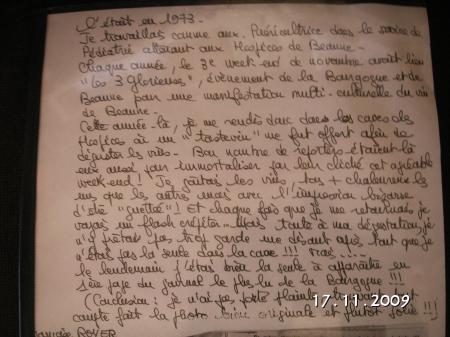 C'était en 1973.
Je travaillais comme aux. Puéricultrice dans le service de
Pédiatrie attenant aux Hospices de Beaune.
Chaque année, le 3e week-end de novembre avait lieu
"les 3 Glorieuses", évènement de la Bourgogne et de
Beaune par une manifestation multi-culturelle du vin
de Beaune.
Cette année-là, je me rendis donc dans les caves des
Hospices où un "tastevin" me fut offert afin de
déguster les vins. Bon nombre de reporters étaient là
eux aussi pour immortaliser par leur cliché cet agréable
week-end! Je goûtais les vins tous + chaleureux les
uns que les autres mais avec l'impression bizarre
d'être "guettée"! Et chaque fois que je me retournais, je
voyais un flash crépiter... Mais toute à ma dégustation, je
n'y prêtais pas trop garde me disant après tout que je
n'étais pas la seule dans la cave!!! Mais ....
le lendemain j'étais bien la seule à apparaître en
1ère page du journal le plus lu de la Bourgogne!!!
(Conclusion: je n'ai pas porté plainte
compte fait la photo était originale et plutôt jolie!!!)
17.11.2009
ROYER